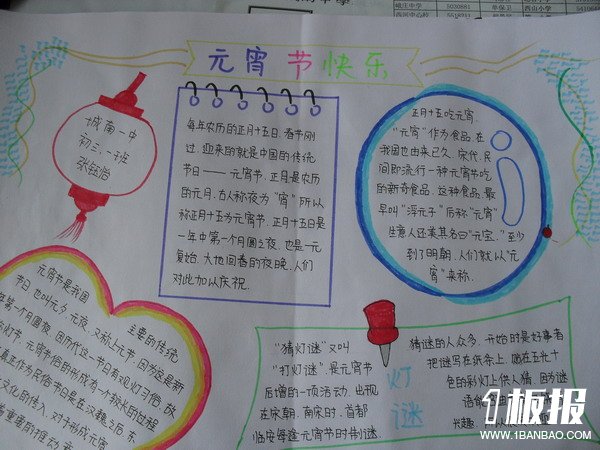 元宵节快乐
城南一中
初三、一班
张钰怡
每年农历的正月十五日.春节刚
过,迎来的就是中国的传统
节日——元宵节.正月是农历
的元月,古人称夜为“宵”所以
称正月十五为元宵节.正月十五日是
一年中第一个月圆之夜,也是一元
复始,大地回春的夜晚,人们
对此加以庆祝.
正月十五吃元宵
“元宵”作为食品,在
我国也由来已久.宋代,民
间即流行一种元宵节吃
的新奇食品.这种食品,最
早叫“浮元子”后称“元宵”
生意人还美其名曰“元宝.”至少
到了明朝,人们就以“元
宵”来称.
元宵节是我国
主要的传统
节日,也叫元夕、元夜,又称上元节,因为这是新
年第一个月圆夜.因历代这一节日有观灯习俗,故
称灯节.元宵节俗的形成有一个较长的过程
真正作为民俗节日是在汉魏之后.东
文化的传入,对于形成元宵
重要的推动
“猜灯谜”又叫
“打灯谜”,是元宵节
后增的一项活动,出现
在宋朝.南宋时,首都
临安每逢元宵节时制谜.
灯谜
猜谜的人众多.开始时是好事者
把谜写在纸条上,贴在五光十
色的彩灯上供人猜.因为谜
语能
兴趣,
1板报
WWW.1BANBAO.COM